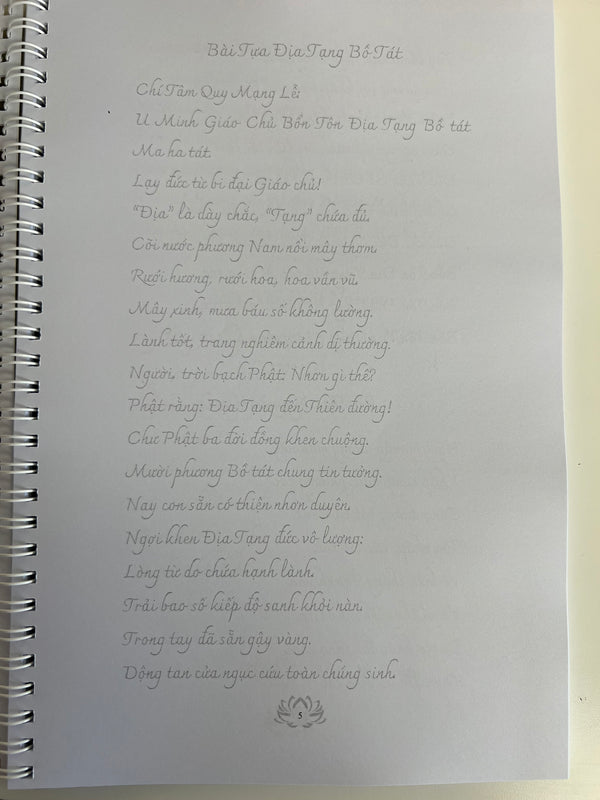 Bài Tựa Địa Tạng Bồ Tát
Chí Tâm Quy Mạng Lễ:
U Minh Giáo Chủ Bổn Tôn Địa Tạng Bồ tát
Ma ha tát.
Lạy đức từ bi đại Giáo chủ!
"Địa" là dày chắc, "Tạng" chứa đủ.
Cõi nước phương Nam nổi mây thơm.
Rưới hương, rưới hoa, hoa vần vũ.
Mây xinh, mưa báu số không lường.
Lành tốt, trang nghiêm cảnh dị thường.
Người, trời bạch Phật: Nhơn gì thế?
Phật rằng: Địa Tạng đến Thiên đường!
Chư Phật ba đời đồng khen chuộng.
Mười phương Bồ tát chung tin tưởng.
Nay con sẵn có thiện nhơn duyên.
Ngợi khen Địa Tạng đức vô lượng:
Lòng từ do chứa hạnh lành.
Trải bao số kiếp độ sanh khỏi nàn.
Trong tay đã sẵn gậy vàng.
Dộng tan cửa ngục cứu toàn chúng sinh.
5